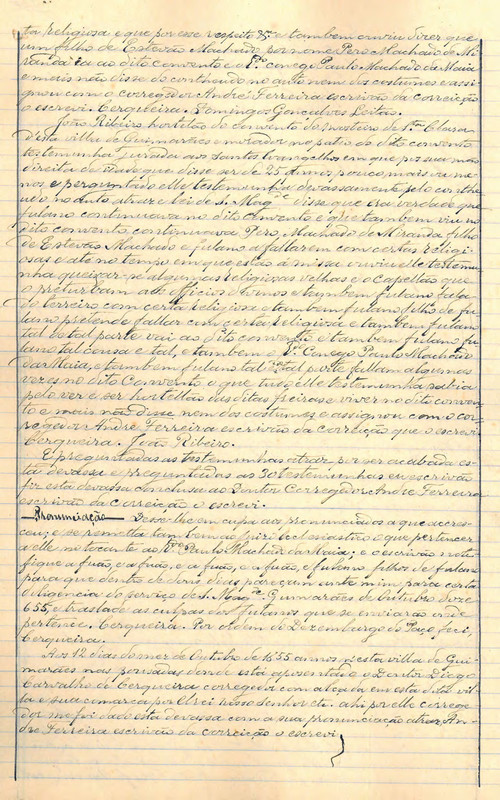 ta religiosa e que por esse respeito &.ª e tambem ouviu dizer que
um filho de Estevão Machado por nome Pero Machado de Mi-
randa ia ao dito convento e o R.do conego Paulo Machado da Maia
e mais não disse do conteudo no auto nem dos costumes e assi-
gnou com o corregedor André Ferreira escrivão da correição
o escrevi. Cerqueira. Domingos Gonçalves Leitão.
João Ribeiro hortelão do convento do mosteiro de S.ta Clara
d'esta villa de Guimarães e morador no pateo do dito convento
testemunha jurada aos Santos Evangelhos em que poz sua mão
direita de idade que disse ser de 25 annos pouco mais ou me-
nos e perguntado elle testemunha devassamente pelo conthe-
udo no auto atraz e lei de S. Mag.de disse que era verdade que
fulano continuava no dito convento e que tambem viu no
dito convento continuava Pero Machado de Miranda filho
de Estevão Machado e fulano a fallarem com certas religi-
osas e até no tempo em que estão á missa ouviu elle testemu-
nha queixar-se algumas religiosas velhas e o Capellão que
o preturbam aos officios divinos e tambem fulano falla
do terreiro com certa religiosa e tambem fulano filho de fu-
lano pretende fallar com certa religiosa e tambem fulano
tal de tal parte vai ao dito convento e tambem fulano fu-
lano tal cousa e tal, e tambem o R.do Conego Paulo Machado
da Maia, e tambem fulano tal de tal parte fallam algumas
vezes no dito Convento e que tudo elle testemunha sabia
pelo ver e ser hortellão das ditas freiras e viver no dito conven-
to e mais não disse nem dos costumes e assignou com o cor-
regedor André Ferreira escrivão da correição que o escrevi
Cerqueira. João Ribeiro.
E preguntadas as testemunhas atraz, por ser acabada es-
ta devassa e preguntadas as 30 testemunhas eu escrivão
fiz esta devassa conclusa ao Doutor Corregedor André Ferreira
escrivão da correição o escrevi.
Pronunciação Desse-lhe em culpa aos pronunciados a que accres-
cou; e se remetta tambem ao juiz ecclesiastico o que pertencer
a elle no tocante ao R.do Paulo Machado da Maia; e o escrivão noti-
fique a fuão, e a fuão, e a fuão, e a fuão, e fulano filhos de fulano
para que dentro de dois dias pareçam ante mim para certa
diligencia do serviço de S. Mag.de Guimarães de Outubro doze
655, e traslade as culpas dos fulanos que se enviarão onde
pertence. Cerqueira. Por ordem do Dezembargo do Paço, fiz,
Cerqueira.
Aos 12 dias do mez de Outubro de 1655 annos n'esta villa de Gui-
marães nas pousadas donde está aposentado o Doutor Diogo
Carvalho de Cerqueira corregedor com alçada em esta dita vil-
la e sua comarca por Elrei nosso Senhor etc. ahi por elle correge-
dor me foi dado esta devassa com a sua pronunciação atraz, An-
dré Ferreira escrivão da correição o escrevi